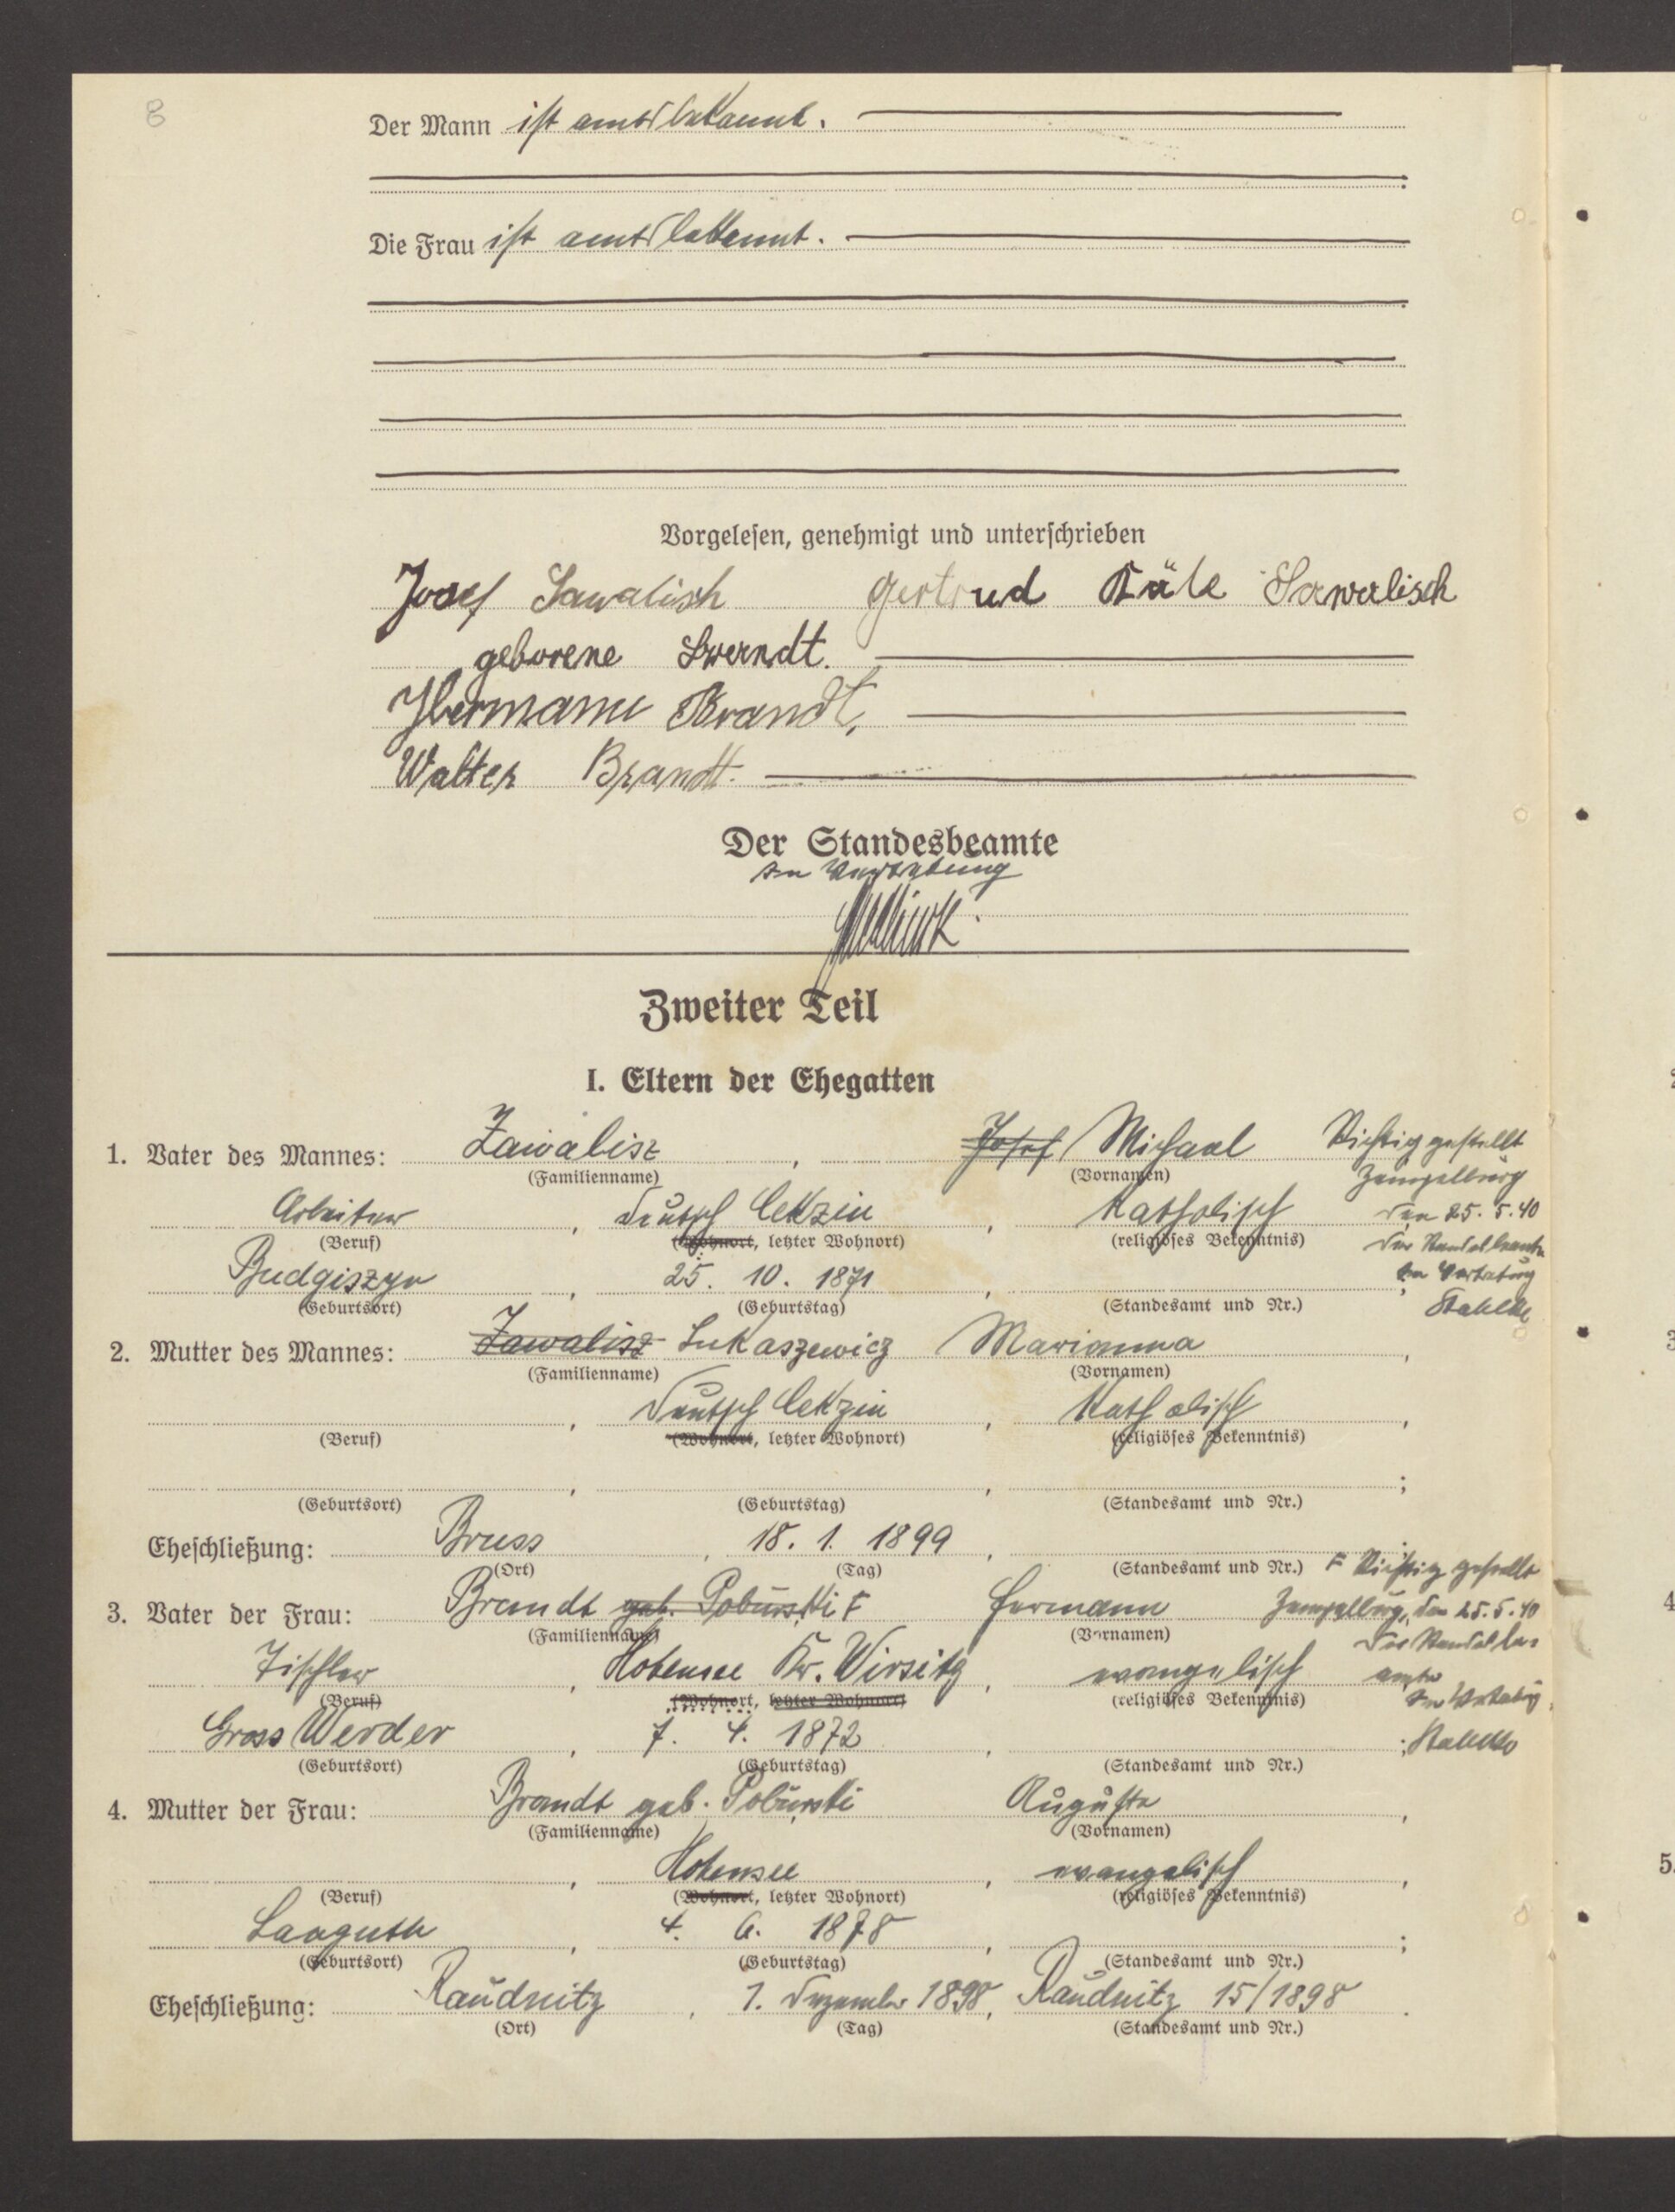 8
Der Mann ist amtsbekannt.
Die Frau ist amtsbekannt.
Vorgelesen, genehmigt und unterschrieben
Josef Sawalisch Gertrud Käte Sawalisch
geborene Brandt.
Hermann Brandt,
Walter Brandt.
Der Standesbeamte
In Vertretung
Zweiter Teil
I. Eltern der Ehegatten
1. Vater des Mannes: Zawalisz, Josef Michael Richtig gestellt
(Familienname) (Vornamen) Zempelburg
Arbeiter, Deutsch Cekzin, Katholisch den 25. 5. 40
(Beruf) (Wohnort, letzter Wohnort) (religiöses Bekenntnis) Der Standesbeamte
Budgiszyn, 25. 10. 1871, ; In Vertretung
(Geburtsort) (Geburtstag) (Standesamt und Nr.)
2. Mutter des Mannes: Zawalisz Lukaszewicz Marianna,
(Familienname) (Vornamen)
, Deutsch Cekzin, Katholisch,
(Beruf) (Wohnort, letzter Wohnort) (religiöses Bekenntnis)
, , ;
(Geburtsort) (Geburtstag) (Standesamt und Nr.)
Eheschließung: Bruss, 18. 1. 1899,
(Ort) (Tag) (Standesamt und Nr.) F Richtig gestellt
3. Vater der Frau: Brandt geb. Poburski F Hermann Zempelburg, den 25. 5. 40
(Familienname) (Vornamen) Der Standesbe-
Tischler, Hohensee Kr. Wirsitz, evangelisch amte
(Beruf) (Wohnort, letzter Wohnort) (religiöses Bekenntnis) In Vertretung
Gross Werder, 7. 4. 1872, ;
(Geburtsort) (Geburtstag) (Standesamt und Nr.)
4. Mutter der Frau: Brandt geb. Poburski Auguste,
(Familienname) (Vornamen)
, Hohensee, evangelisch,
(Beruf) (Wohnort, letzter Wohnort) (religiöses Bekenntnis)
, 4. 6. 1878, ;
(Geburtsort) (Geburtstag) (Standesamt und Nr.)
Eheschließung: Raudnitz, 1. Dezember 1898, Raudnitz 15/1898.
(Ort) (Tag) (Standesamt und Nr.)